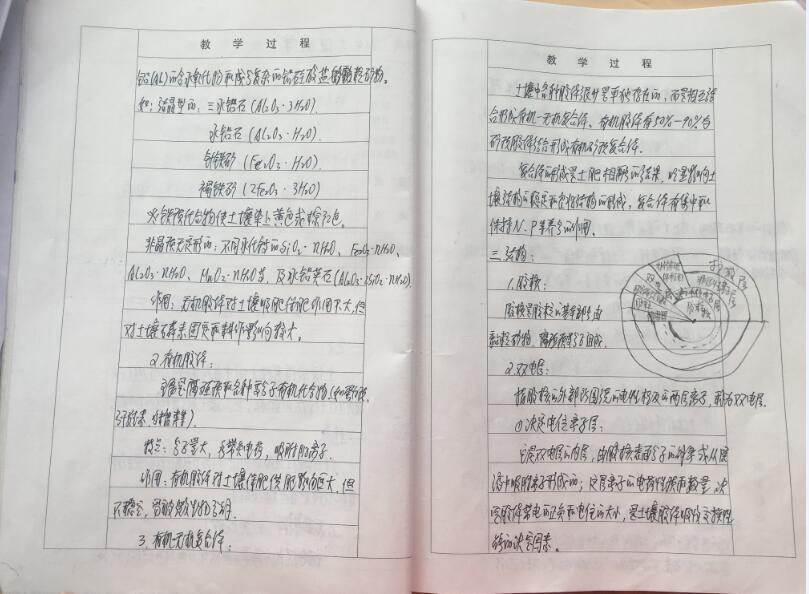 教 学 过 程
铝(AL)的含水氧化物和成分复杂的铝硅酸盐的粘粒矿物。
如：结晶型的：三水铝石(Al₂O₃·3H₂O)
水铝石(Al₂O₃·H₂O)
针铁矿(Fe₂O₃·H₂O)
褐铁矿(2Fe₂O₃·3H₂O)
水铁氧化合物使土壤染上黄色或棕红色。
非晶质无定形的：不同水化的SiO₂·nH₂O、Fe₂O₃·nH₂O、
Al₂O₃·nH₂O、MnO₂·nH₂O等，及水铝英石(Al₂O₃·2SiO₂·nH₂O)
作用：无机胶体对土壤吸肥保肥作用不大，但
对土壤
2.有机胶体：
主要是腐殖质和各种高分子有机化合物(如蛋白质、
纤维素
特点：分子量大，常带负电荷，吸附阳离子。
作用：有机胶体对土壤保肥供肥影响巨大，但
不稳定，易被微生物分解。
3.有机无机复合体：
教 学 过 程
土壤中各种胶体很少是单独存在的，而是相互结
合形成有机-无机复合体，有机胶体有50%-90%与
矿质胶体结合形成有机矿质复合体。
复合体的形成是土肥相融的结果，
壤结构的稳定和良好结构的形成，复合体有集中和
保持N、P等养分的作用。
三、结构：
1.胶核：
胶核是胶粒的基本部分，由
粘粒矿物，腐殖质等分子组成。
2.双电层：
指胶核的外部，围绕的电性相反的两层离子，称为双电层。
①决定电位离子层：
它是双电层的内层，由胶核表面分子的解离或从
溶液中吸附离子形成的；定位离子的电荷性质和数量，决
定胶体带电的正负和电位的大小，是土壤胶体吸收交换性
能的决定因素。
扩散层